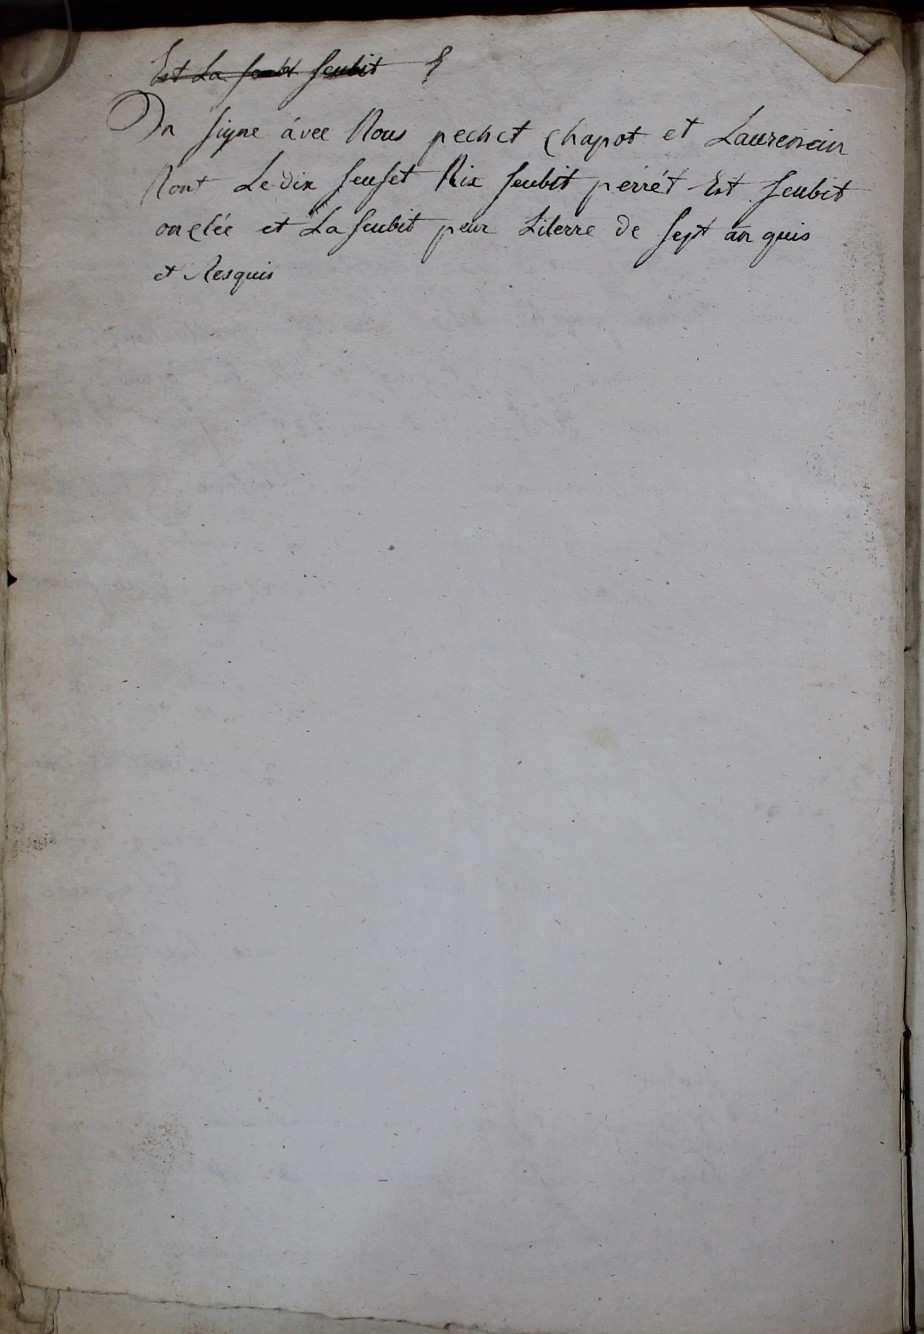 Est La scubit scubit
On signe avec Nous pechet Chapot et Laurencin
Nont Le dix seuset Rix scubit perrét Est scubit
onclée et La scubit peur Liberre de sept an quis
et Resquis